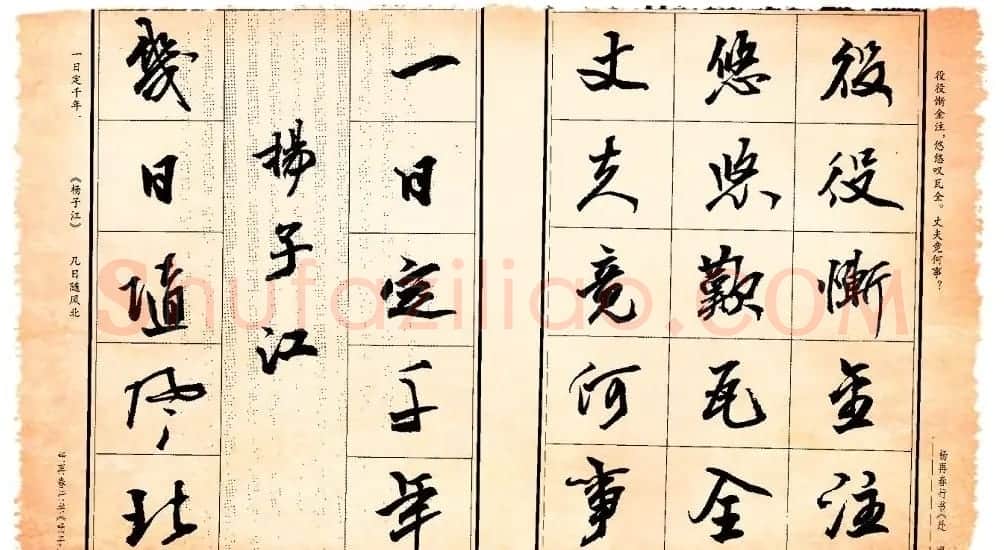 役役惭金注,悠悠叹瓦全。丈夫竟何事?
杨再春行书《
役役慚金注
悠悠歎瓦全
丈夫竟何事
一日定千年
揚子江
幾日隨风北
一日定千年.
《杨子江》
几日随风北
Shufaziliao.COM